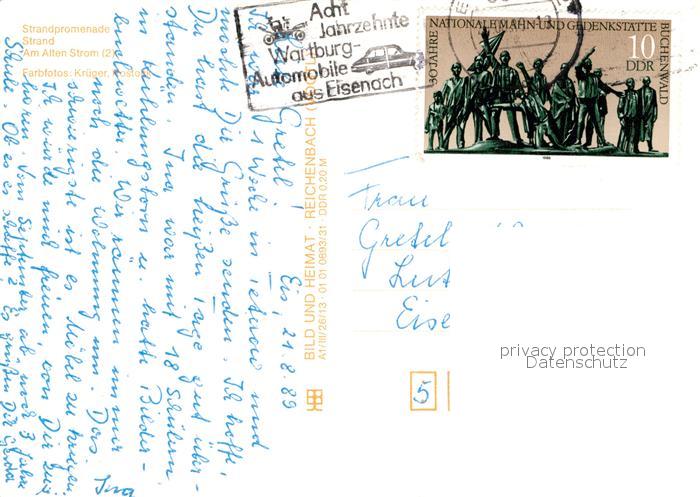 Strandpromenade
Strand
Am Alten Strom (2)
Farbfotos: Krüger, Rostock
Acht
Jahrzehnte
Wartburg-
Automobile
aus Eisenach
30 JAHRE NATIONALE MAHN- UND GEDENKSTÄTTE BUCHENWALD
10
DDR
1988
BILD UND HEIMAT · REICHENBACH
A1/III/26/13 · 01 01 0893/31 · DDR 0,20 M
Eis, 21.8.89
Gretel!
1 Woche in Teterow und
Dir Grüße senden. Ich hoffe,
Du hast die heißen Tage gut über-
standen. Ina war mit 18 Schülern
in u. hatte Bilder-
Wir räumen immer
noch die Wohnung um. Das
schwierigste ist es Möbel zu kriegen.
Ich würde mich freuen, von Dir zu
hören. Vom September ab noch 3 Jahre
Schule. Ob es schaffe? Es grüßen Dir Gerda
Ina
Frau
Gretel
Eise
5
privacy protection
Datenschutz